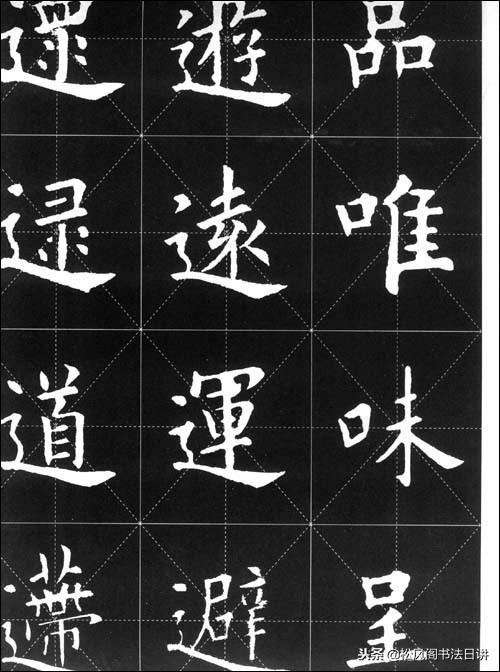 品唯味呈
遊遠運避
逯道
头条 @松风阁书法日讲